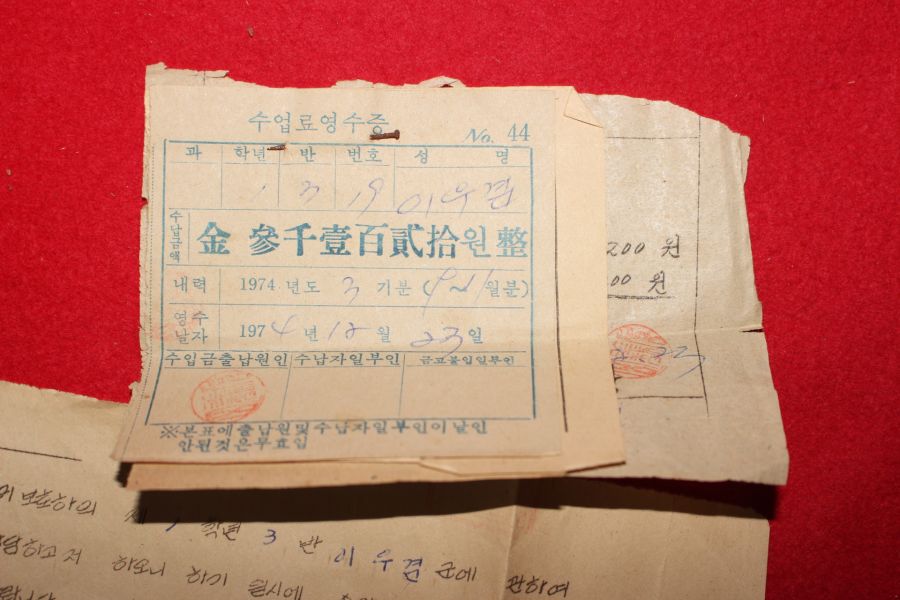 수업료영수증
No. 44
과 학년 반 번호 성 명
1 3 19 이우겸
수납금액 金 參千壹百貳拾원整
내력 1974 년도 3 기분 (9~11월분)
영수날자 1974 년 12 월 23일
수입금출납원인 수납자일부인 금고불입일부인
※본표에출납원및수납자일부인이날인
안된것은무효임
200 원
00 원
제 1 학년 3 반
이우겸 군에 관하여
하고저 하오니 하기 일시에